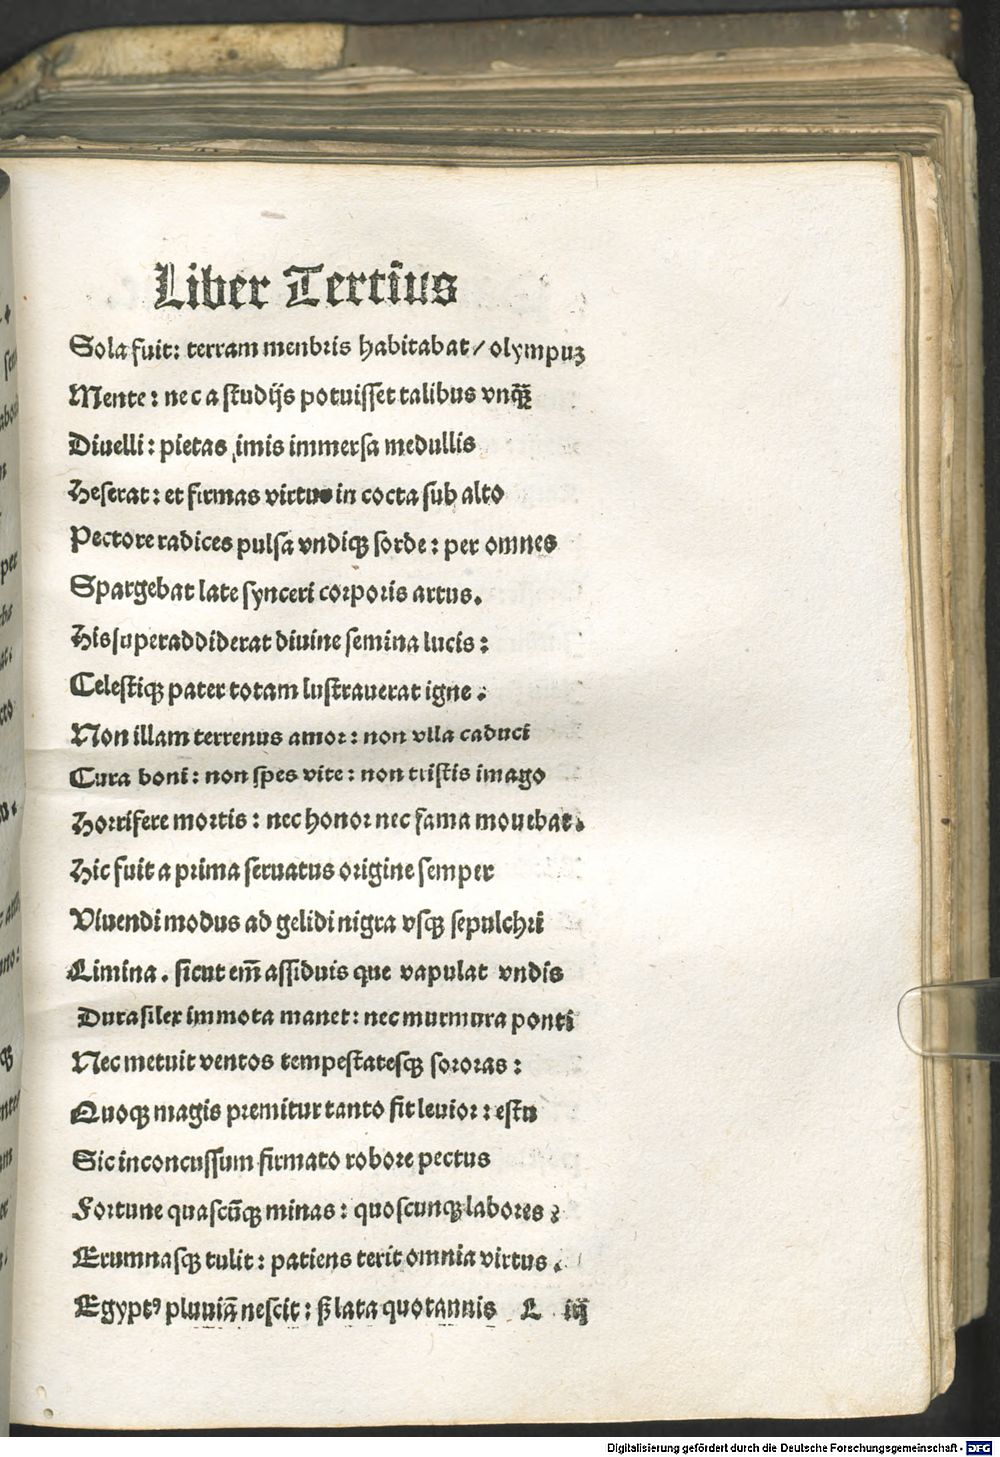 Liber Tertius
Sola fuit: terram menbris habitabat/ olympuʒ
Mente: nec a studijs potuisset talibus vnq̄ꝫ
Diuelli: pietas imis immersa medullis
Heserat: et firmas virtus in cocta sub alto
Pectore radices pulsa vndiqꝫ sorde: per omnes
Spargebat late synceri corporis artus.
His superaddiderat diuine semina lucis:
Celestiqꝫ pater totam lustrauerat igne.
Non illam terrenus amor: non vlla caduci
Cura boni: non spes vite: non tristis imago
Horrifere mortis: nec honor nec fama mouebat.
Hic fuit a prima seruatus origine semper
Viuendi modus ad gelidi nigra vsqꝫ sepulchri
Limina. sicut em̄ assiduis que vapulat vndis
Dura silex immota manet: nec murmura ponti
Nec metuit ventos tempestatesqꝫ sororas:
Quoqꝫ magis premitur tanto fit leuior: estu
Sic inconcussum firmato robore pectus
Fortune quascūqꝫ minas: quoscunqꝫ labores
Erumnasqꝫ tulit: patiens terit omnia virtus.
Egyptꝰ pluuiā nescit: ß lata quotannis L iij
Digitalisierung gefördert durch die Deutsche Forschungsgemeinschaft - DFG